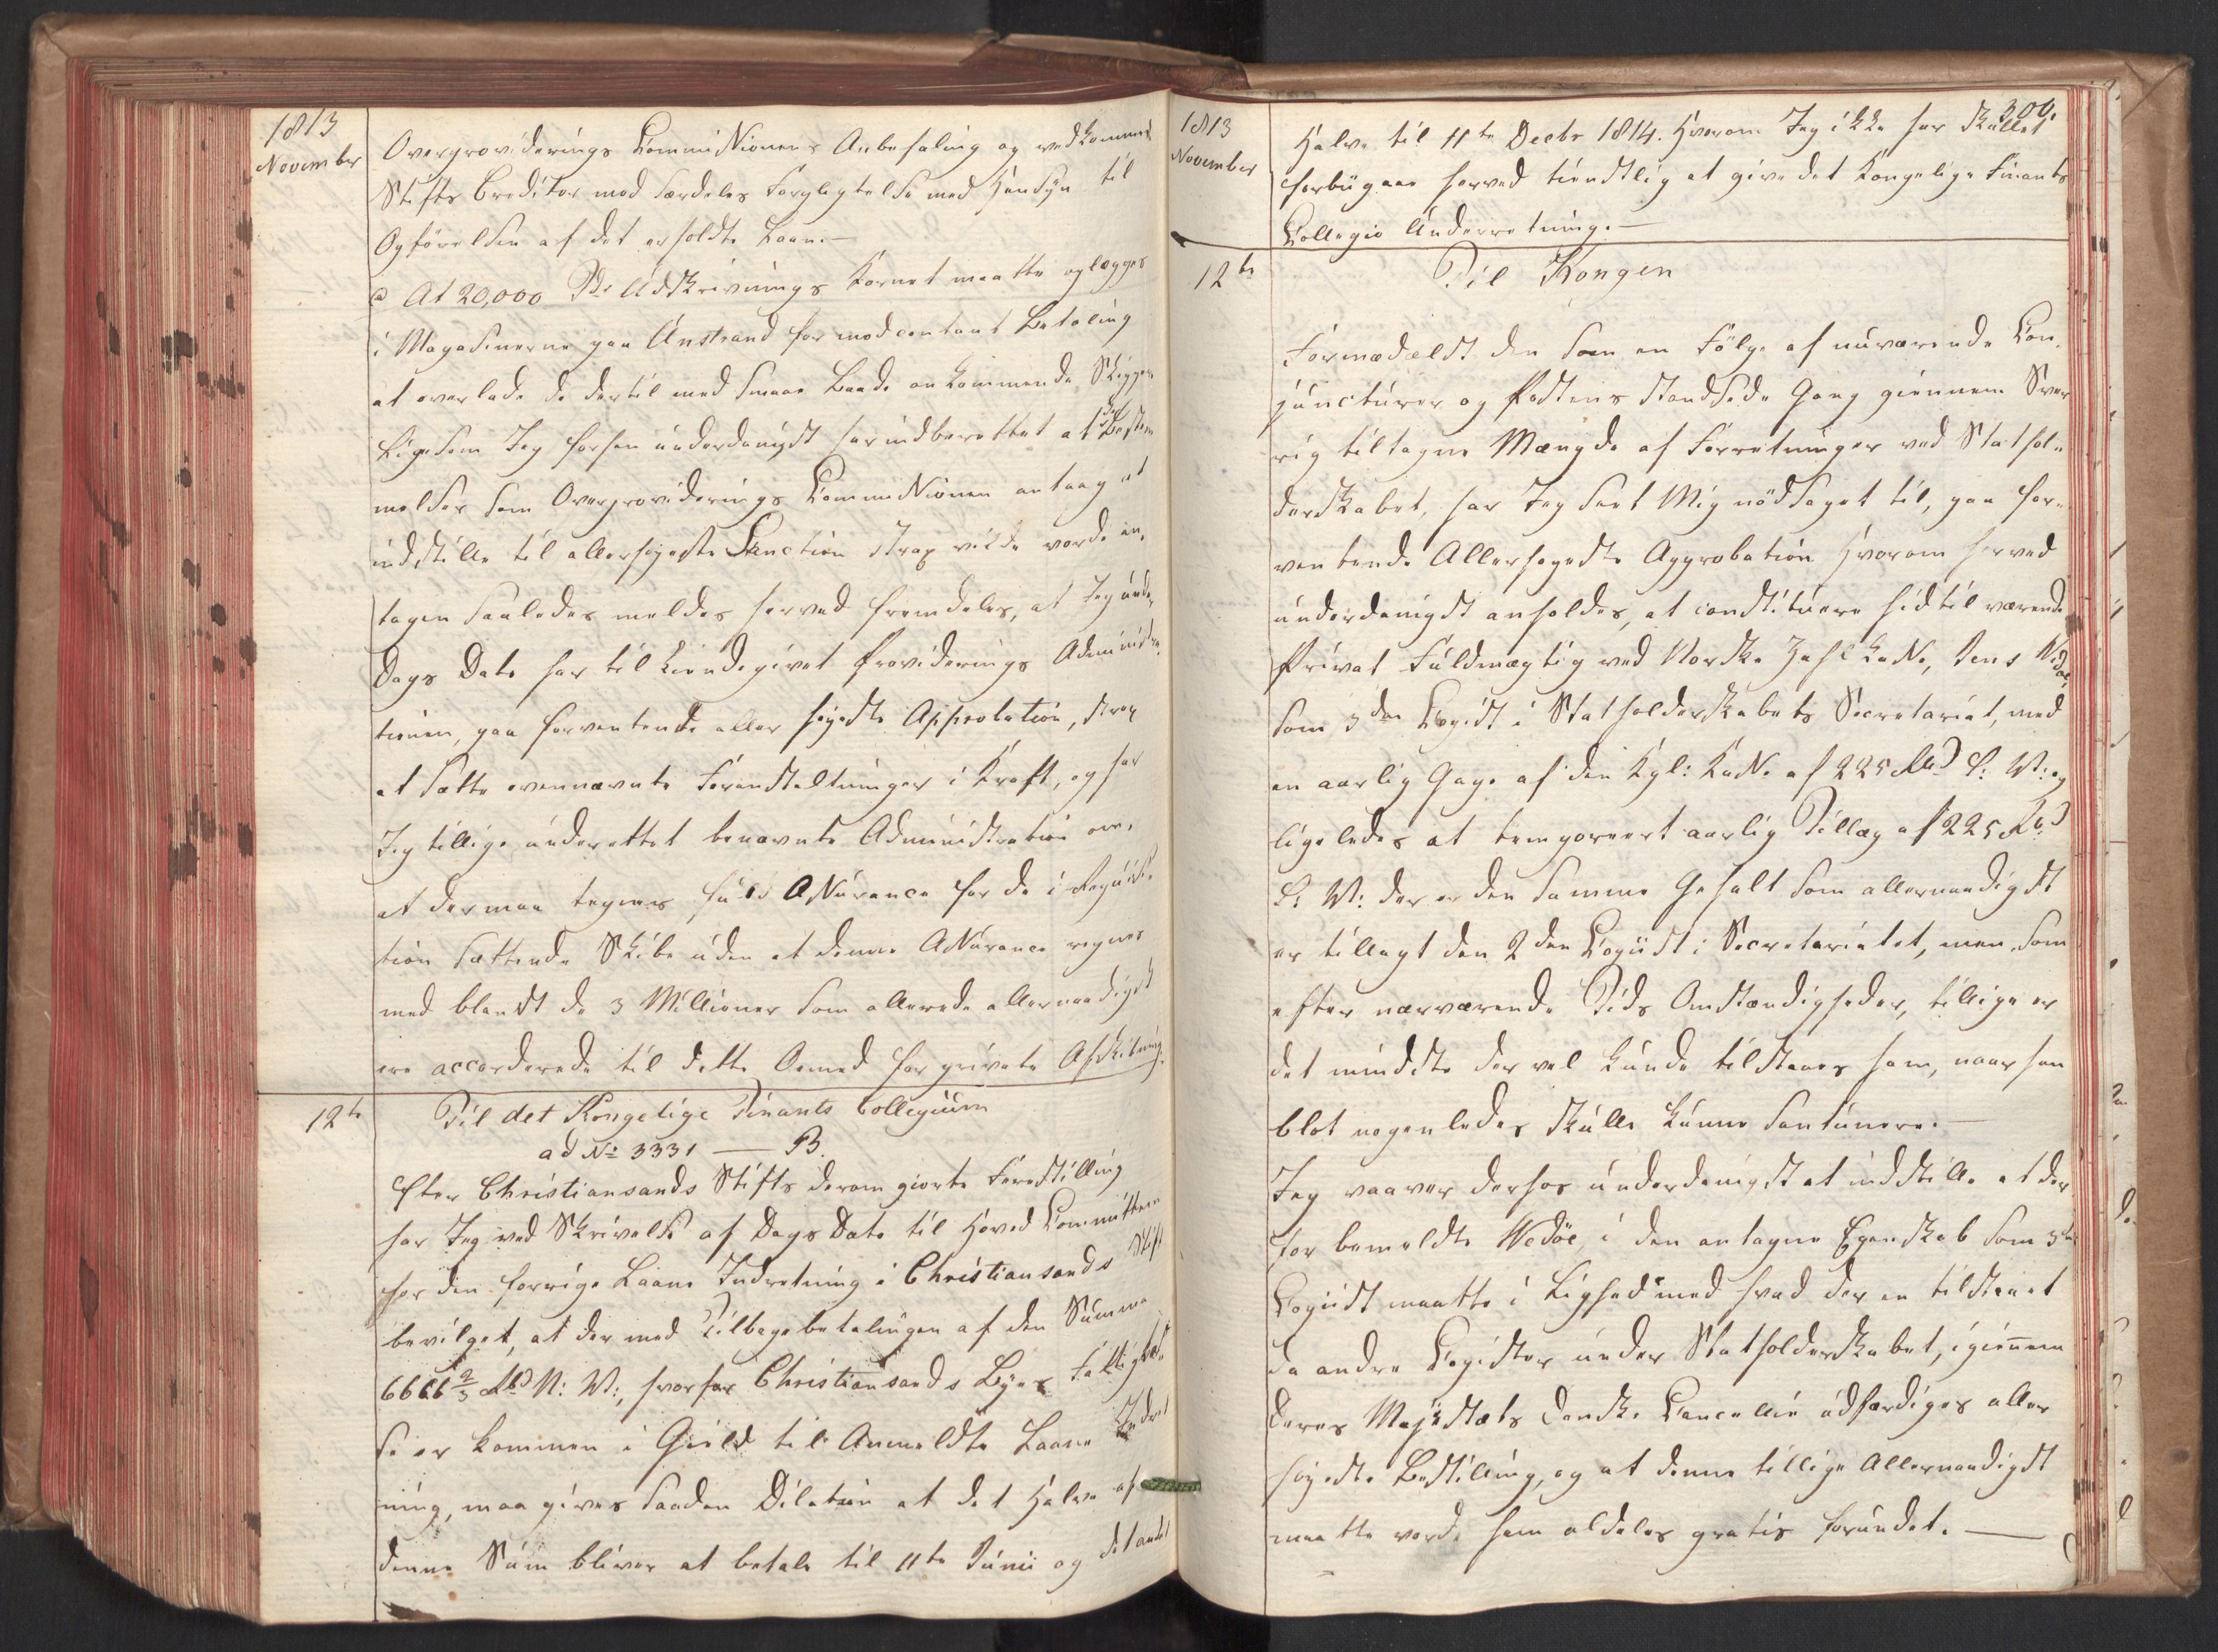 1813
November
Overproviderings Commissionens Anbefaling og vedkommende
Stifts Creditor mod særdeles Forpligtelse med Hensyn til
Opførelsen af det erholdte Laan. —
c At 20,000 Tdr Udskrivnings Kornet maatte oplægges
i Magasinerne paa Anstrand for mod contant Betaling
at overlade de dertil med smaae Baade ankommende Skipper
Ligesom Jeg forhen underdanigst har indberettet at de Bestem
melser som Overproviderings Commissionen antaag at
indstille til allerhøyeste Sanction strax vilde vorde an,
tagen saaledes meldes herved fremdeles, at Jeg under
Dags Dato har tilkiendegivet Providerings Administra
tionen, paa forventende allerhøyeste Approbation, strax
at sætte ovennævnte Foranstaltninger i Kraft, og har
Jeg tillige underrettet benævnte Administration om,
at der maa tegnes fuld Assurance for de i Reqvisi,
tion sættende Skibe uden at denne Assurance regnes
med blandt de 3 Millioner som allerede allernaadigst
ere accorderede til dette Øemed for private Afskibning.
12te
Til det Kongelige Finants Collegium
ad No 3331 — B.
Efter Christiansands Stifts derom giorte Forestilling
har Jeg ved Skrivelse af Dags Dato til Hoved Committeen
for den forrige Laane Indretning i Christiansands Stift
bevilget, at der med Tilbagebetalingen af den Summa
6666 2/3 Rbd N: W:, hvorfor Christiansands Byes Fattigvæ,
se er kommen i Gield til Anmeldte Laane Indret
ning, maa gives saadan Dilation at det Halve af
denne Sum bliver at betale til 11te Junii og det andet
1813
November
300.
Halve til 11te Decbr 1814. Hvorom Jeg ikke har skullet
forbiigaae herved tienstlig at give det Kongelige Finants
Collegio Underretning. —
12te
Til Kongen
Formedelst den som en Følge af nuværende Con,
juncturer og Postens standsede Gang giennem Sver
rig tiltagne Mængde af Forretninger ved Stathol,
derskabet, har Jeg seet Mig nødsaget til, paa for,
ventende Allerhøyeste Approbation hvorom herved
underdanigst anholdes, at constituere hidtil værende
Privat Fuldmægtig ved Norske Zahlkasse, Jens Wedøe
som 3die Copiist i Statholderskabets Secretariat, med
en aarlig Gage af den Kgl: Kasse af 225 Rbd S: V: og
ligeledes at temporert aarlig Tillæg af 225 Rbd
S: V: der er den samme Gehalt som allernaadigst
er tillagt den 2den Copiist i Secretariatet, men som
efter nærværende Tids Omstændigheder, tillige er
det mindste der vel kunde tilstaaes ham, naar han
blot nogenledes skulle kunne soutinere. —
Jeg vaaver derhos underdanigst at indstille at der
for bemeldte Wedöe i den antagne Egenskab som 3die
Copiist maatte i Lighed med hvad der er tilstaaet
de andre Copister under Statholderskabet, igiennem
Deres Majestæts Danske Cancellie udfærdiges aller
høyeste Bestilling, og at denne tillige Allernaadigst
maatte vorde ham aldeles gratis forundet. —